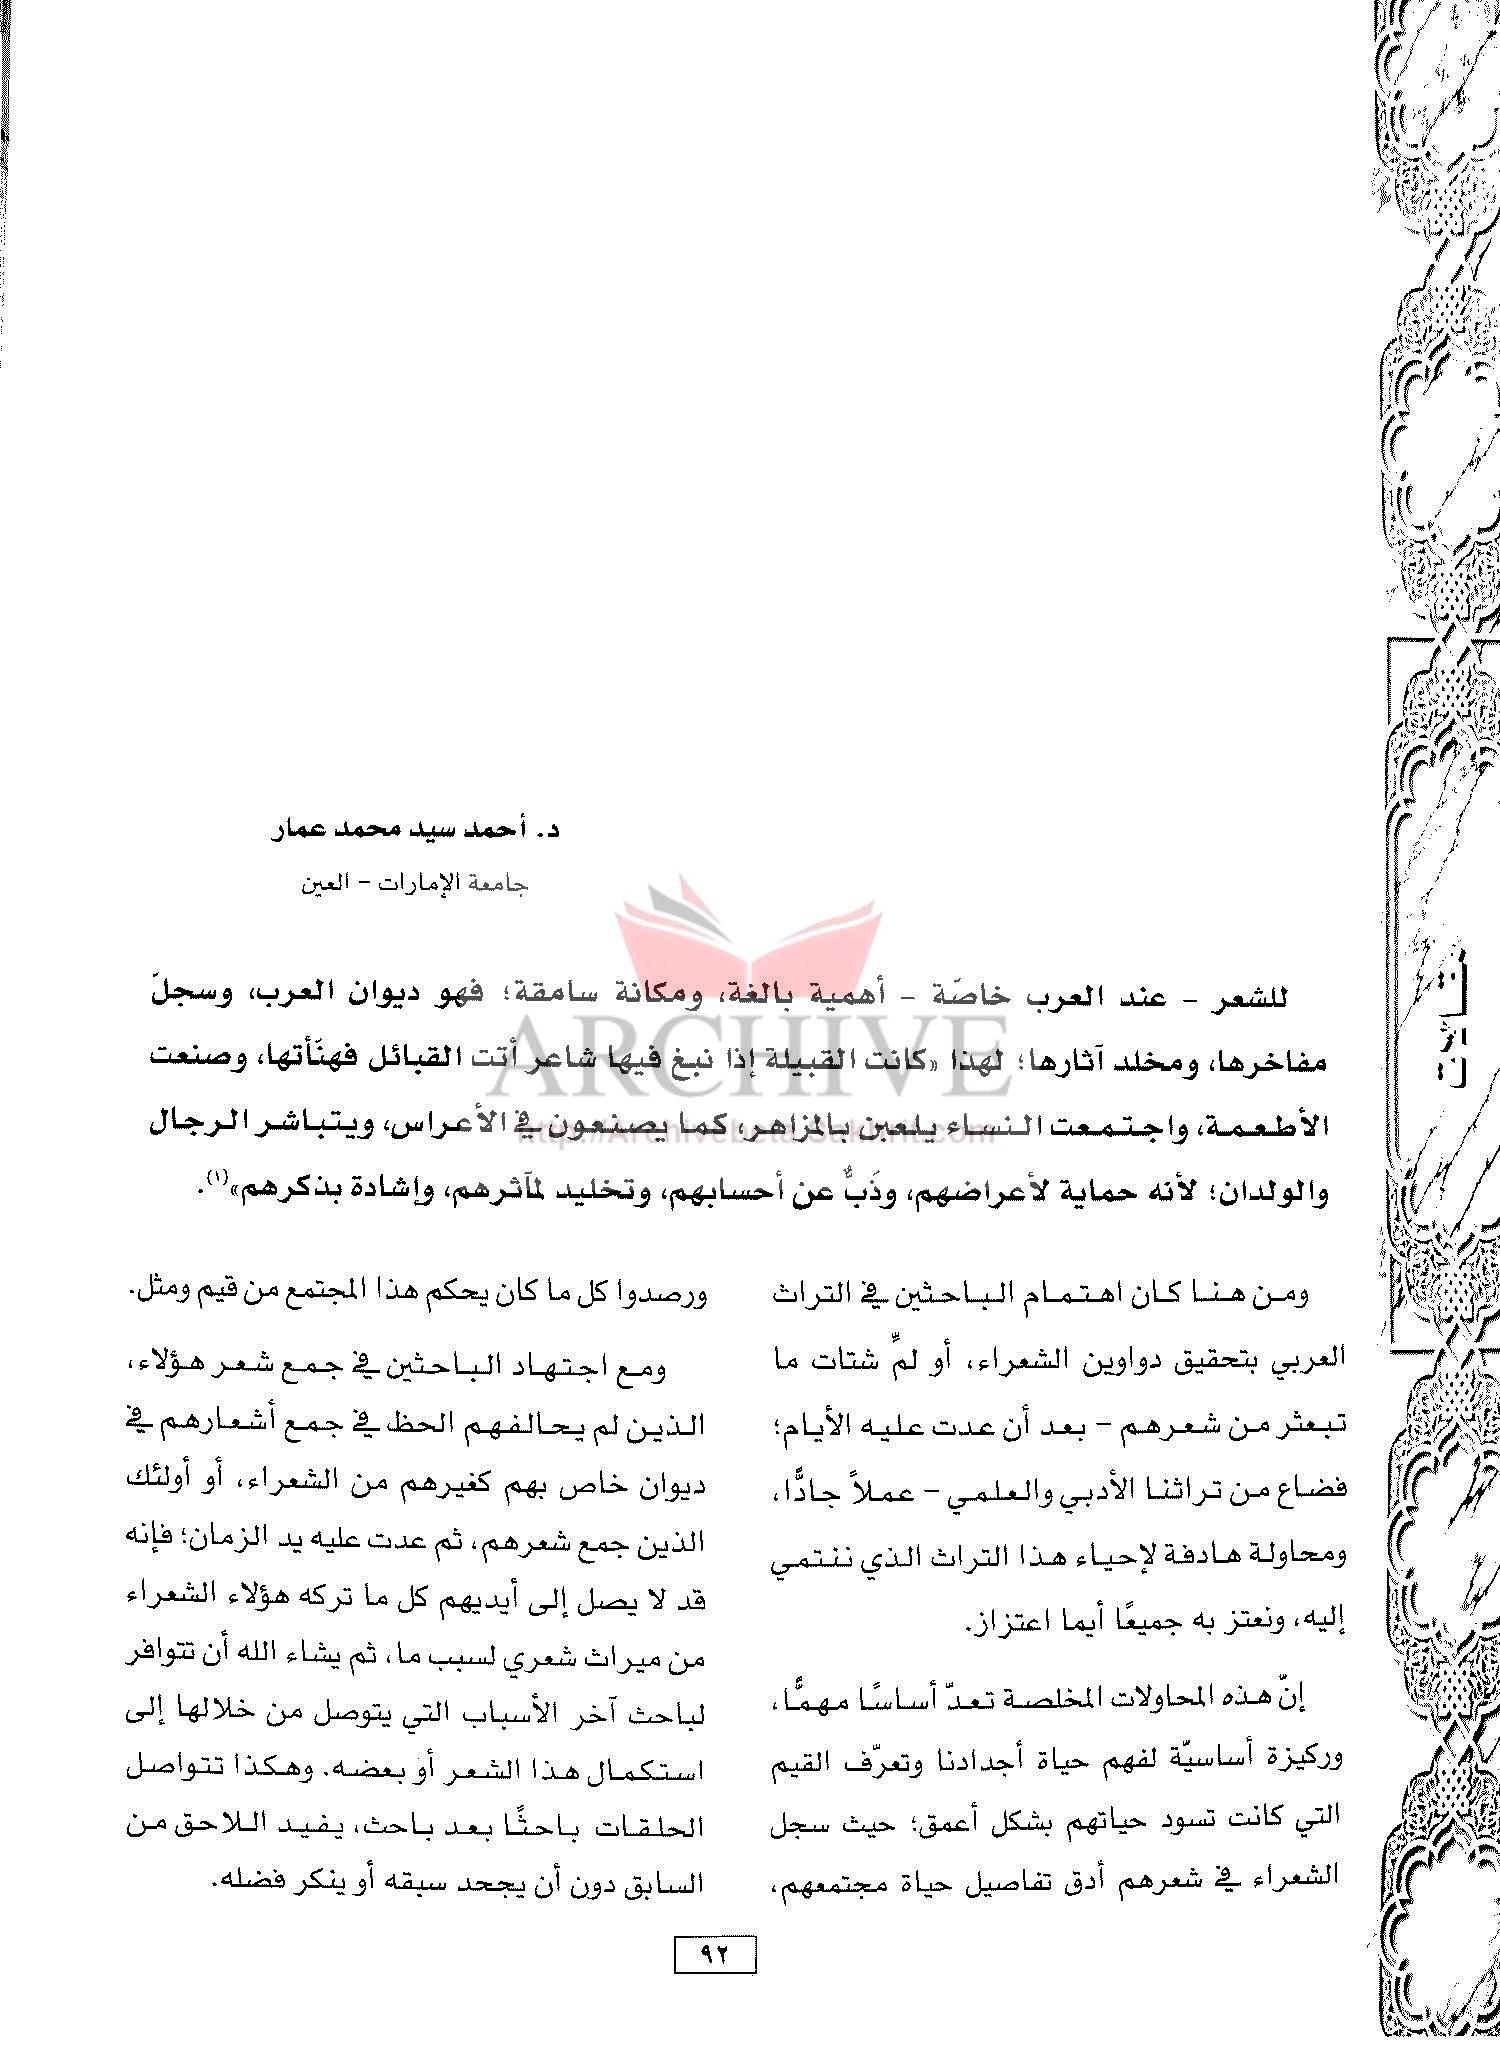 د. أحمد سيد محمد عمار
جامعة الإمارات - العين
للشعر - عند العرب خاصّة - أهمية بالغة، ومكانة سامقة؛ فهو ديوان العرب، وسجلّ
مفاخرها، ومخلد آثارها؛ لهذا «كانت القبيلة إذا نبغ فيها شاعر أتت القبائل فهنّأتها، وصنعت
الأطعمة، واجتمعت النساء يلعبن بالمزاهر، كما يصنعون في الأعراس، ويتباشر الرجال
والولدان؛ لأنه حماية لأعراضهم، وذَبٌّ عن أحسابهم، وتخليد لمآثرهم، وإشادة بذكرهم»(١).
ARCHIVE
ومن هنا كان اهتمام الباحثين في التراث
العربي بتحقيق دواوين الشعراء، أو لمِّ شتات ما
تبعثر من شعرهم - بعد أن عدت عليه الأيام؛
فضاع من تراثنا الأدبي والعلمي - عملاً جادًّا،
ومحاولة هادفة لإحياء هذا التراث الذي ننتمي
إليه، ونعتز به جميعًا أيما اعتزاز.
إنّ هذه المحاولات المخلصة تعدّ أساسًا مهمًّا،
وركيزة أساسيّة لفهم حياة أجدادنا وتعرّف القيم
التي كانت تسود حياتهم بشكل أعمق؛ حيث سجل
الشعراء في شعرهم أدق تفاصيل حياة مجتمعهم،
ورصدوا كل ما كان يحكم هذا المجتمع من قيم ومثل.
ومع اجتهاد الباحثين في جمع شعر هؤلاء،
الذين لم يحالفهم الحظ في جمع أشعارهم في
ديوان خاص بهم كغيرهم من الشعراء، أو أولئك
الذين جمع شعرهم، ثم عدت عليه يد الزمان؛ فإنه
قد لا يصل إلى أيديهم كل ما تركه هؤلاء الشعراء
من ميراث شعري لسبب ما، ثم يشاء الله أن تتوافر
لباحث آخر الأسباب التي يتوصل من خلالها إلى
استكمال هذا الشعر أو بعضه. وهكذا تتواصل
الحلقات باحثًا بعد باحث، يفيد اللاحق من
السابق دون أن يجحد سبقه أو ينكر فضله.
٩٢